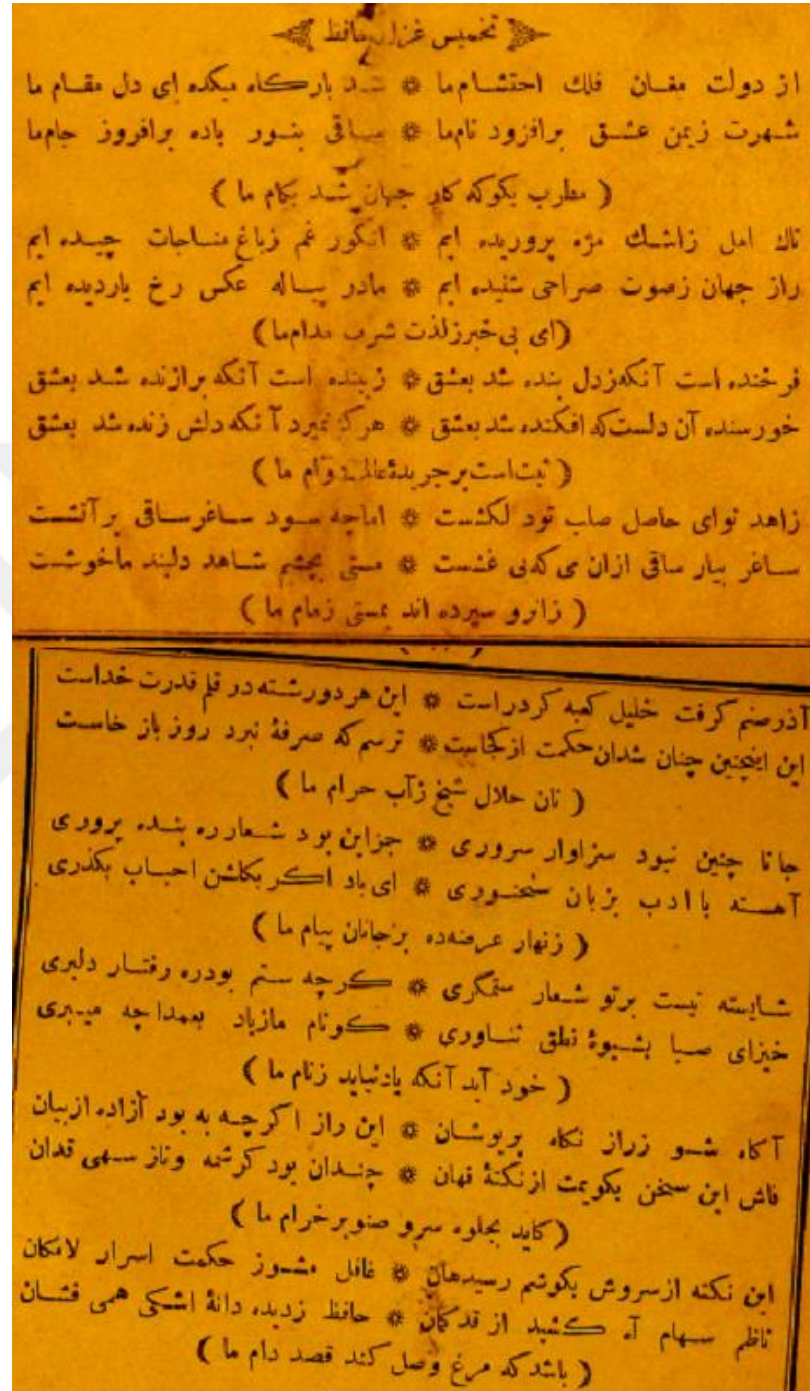 تخمیس غزل حافظ
از دولت مغان فلك احتشام ما ❋ شد بارگاه میکده ای دل مقام ما
شهرت زیمن عشق برافزود نام‌ما ❋ ساقی بنور باده برافروز جام‌ما
( مطرب بکوکه کار جهان شد بکام ما )
تاك امل زاشك مژه پروریده ایم ❋ انکور غم زباغ مناجات چیده ایم
راز جهان زصوت صراحی شنیده ایم ❋ مادر پیاله عکس رخ یاردیده ایم
(ای بی خبرزلذت شرب مدام‌ما)
فرخنده است آنکه‌زدل بنده شد بعشق ❋ زیبنده است آنکه برازنده شد بعشق
خورسنده آن دلست‌که افکنده شد بعشق ❋ هرکز نمیرد آنکه دلش زنده شد بعشق
( ثبت‌است‌برجریدهٔ‌عالم‌دوام ما )
زاهد نوای حاصل صاب تود لکشست ❋ اماچه سود ساغرساقی برآتشست
ساغر بیار ساقی ازان می که‌بی غشست ❋ مستی بچشم شاهد دلبند ماخوشست
( زانرو سپرده اند بمستی زمام ما )
آذرصنم کرفت خلیل کعبه کردراست ❋ این هردورشته‌در قلم قدرت خداست
این اینچنین چنان شدان‌حکمت ازکجاست ❋ ترسم‌که صرفهٔ نبرد روز باز خاست
( نان حلال شیخ زآب حرام ما )
جانا چنین نبود سزاوار سروری ❋ جزاین بود شعارره بنده پروری
آهسته باادب بزبان سخنوری ❋ ای باد اکر بکلشن احباب بکذری
( زنهار عرضه‌ده برجانان پیام ما )
شایسته نیست برتو شعار ستمکری ❋ کرچه ستم بودره رفتار دلبری
خیزای صبا بشیوهٔ نطق ثناوری ❋ کونام مازیاد بعمداچه میبری
( خود آید آنکه یادنیاید زنام ما )
آکاه شو زراز نکاه پریوشان ❋ این راز اکرچه به بود آزاده ازبیان
فاش این سخن بکویمت ازنکتهٔ نهان ❋ چندان بود کرشمه وناز سهی قدان
( کاید بجلوه سرو صنوبرخرام ما )
این نکته ازسروش بکوشم رسیدهان ❋ غافل مشوز حکمت اسرار لامکان
ناظم سهام آه کشید از قدکمان ❋ حافظ زدیده دانهٔ اشکی همی فشان
( باشدکه مرغ وصل کند قصد دام ما )